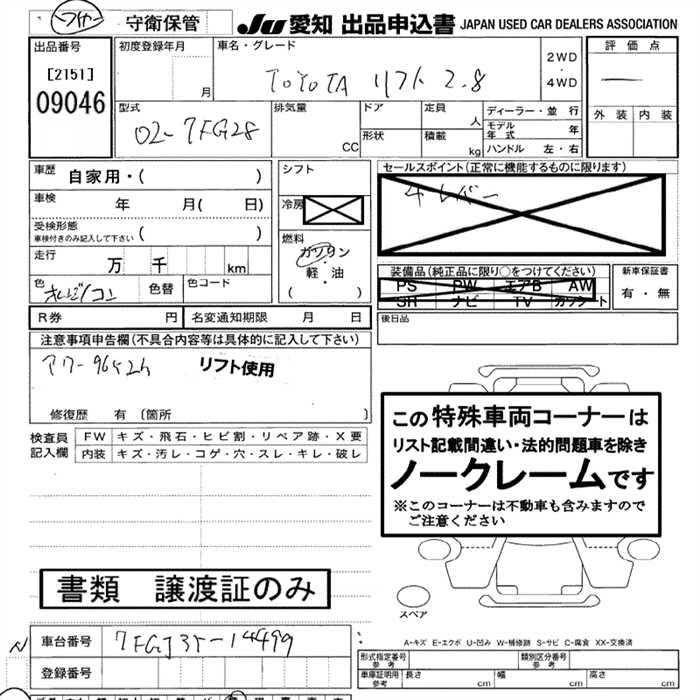 守衛保管
JU 愛知 出品申込書 JAPAN USED CAR DEALERS ASSOCIATION
出品番号
[2151]
09046
初度登録年月
月
車名・グレード
TOYOTA リフト 2.8
2WD
・
4WD
評価点
外装 内装
型式
02-7FG28
排気量
CC
ドア
形状
定員
人
積載
kg
ディーラー・並行
モデル年式 年
ハンドル 左・右
車歴 自家用・( )
車検 年 月( 日)
受検形態
車検付きのみ記入して下さい ( )
走行 万 千 km
色 色替 色コード
シフト
冷房
燃料
ガソリン
・
軽・油
( )
セールスポイント(正常に機能するものに限ります)
装備品(純正品に限り○をつけてください)
PS PW エアB AW
SR ナビ TV カワシート
新車保証書
有・無
R券 円 名変通知期限 月 日
後日品
注意事項申告欄(不具合内容等は具体的に記入して下さい)
アワー9652h リフト使用
修復歴 有 〔箇所 〕
検査員記入欄
FW キズ・飛石・ヒビ割・リペア跡・X要
内装 キズ・汚レ・コゲ・穴・スレ・キレ・破レ
この特殊車両コーナーは
リスト記載間違い・法的問題車を除き
ノークレームです
※このコーナーは不動車も含みますので
ご注意ください
書類 譲渡証のみ
スペア
A-キズ E-エクボ U-凹み W-補修跡 S-サビ C-腐食 XX-交換済
N
車台番号 7FGJ35-14499
登録番号
形式指定番号 参考
類別区分番号 参考
車庫証明用 参考 長さ cm 幅 cm 高さ cm